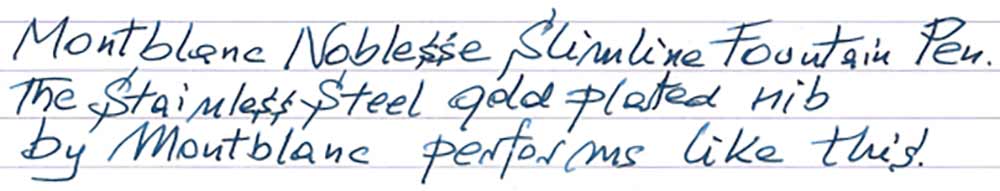 Montblanc Noblesse Slimline Fountain Pen.
The Stainless Steel gold plated nib
by Montblanc performs like this.